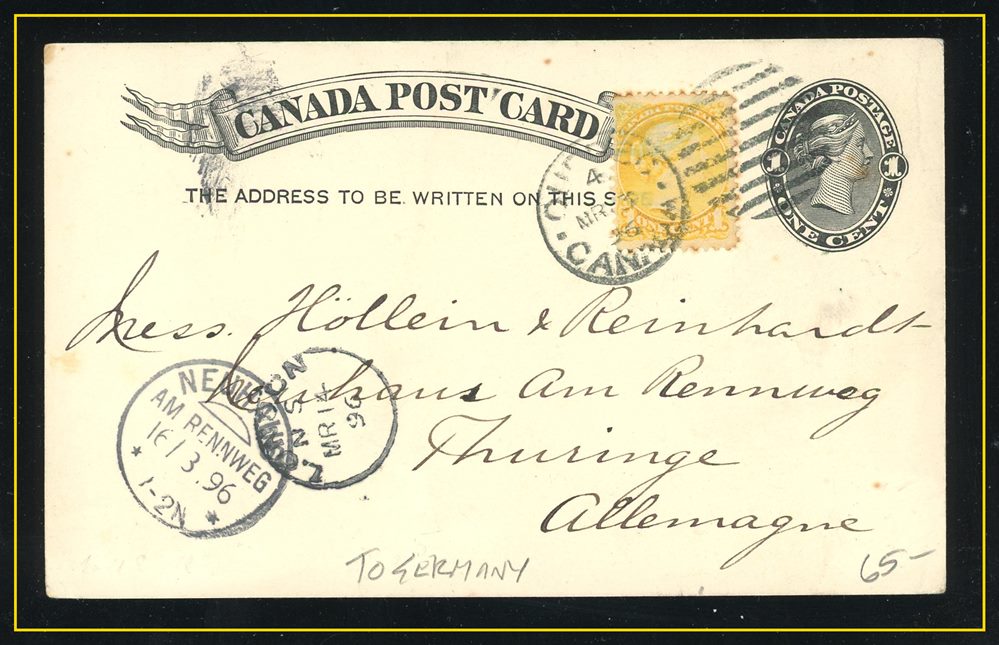 CANADA POST CARD
THE ADDRESS TO BE WRITTEN ON THIS S
CANADA POSTAGE
1 1
ONE CENT
4
MR
CANADA
Mess. Höllein & Reinhardt
Neuhaus Am Rennweg
Thuringe
Allemagne
LONDON
N S
MR 14
96
AM RENNWEG
16/3.96
* 1-2N *
TO GERMANY
65-